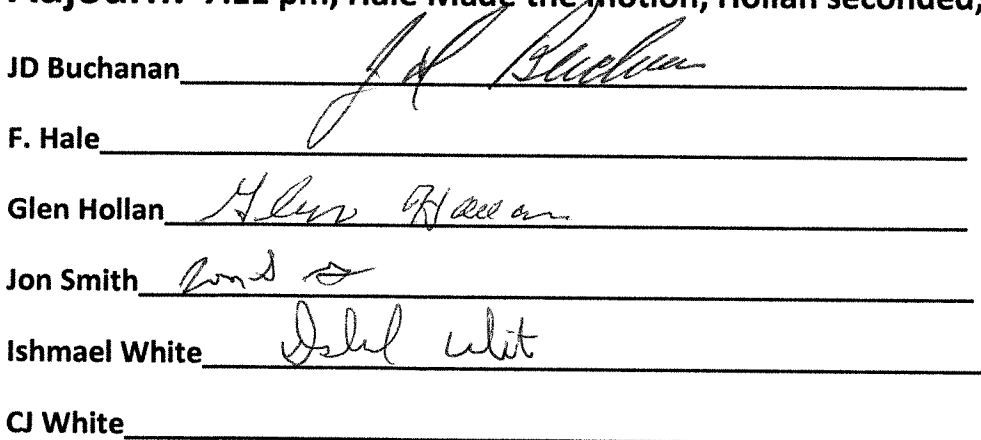 7:22 pm, Hale Made the motion, Hollan seconded,
JD Buchanan JD Buchanan
F. Hale
Glen Hollan Glen Hollan
Jon Smith
Ishmael White
CJ White